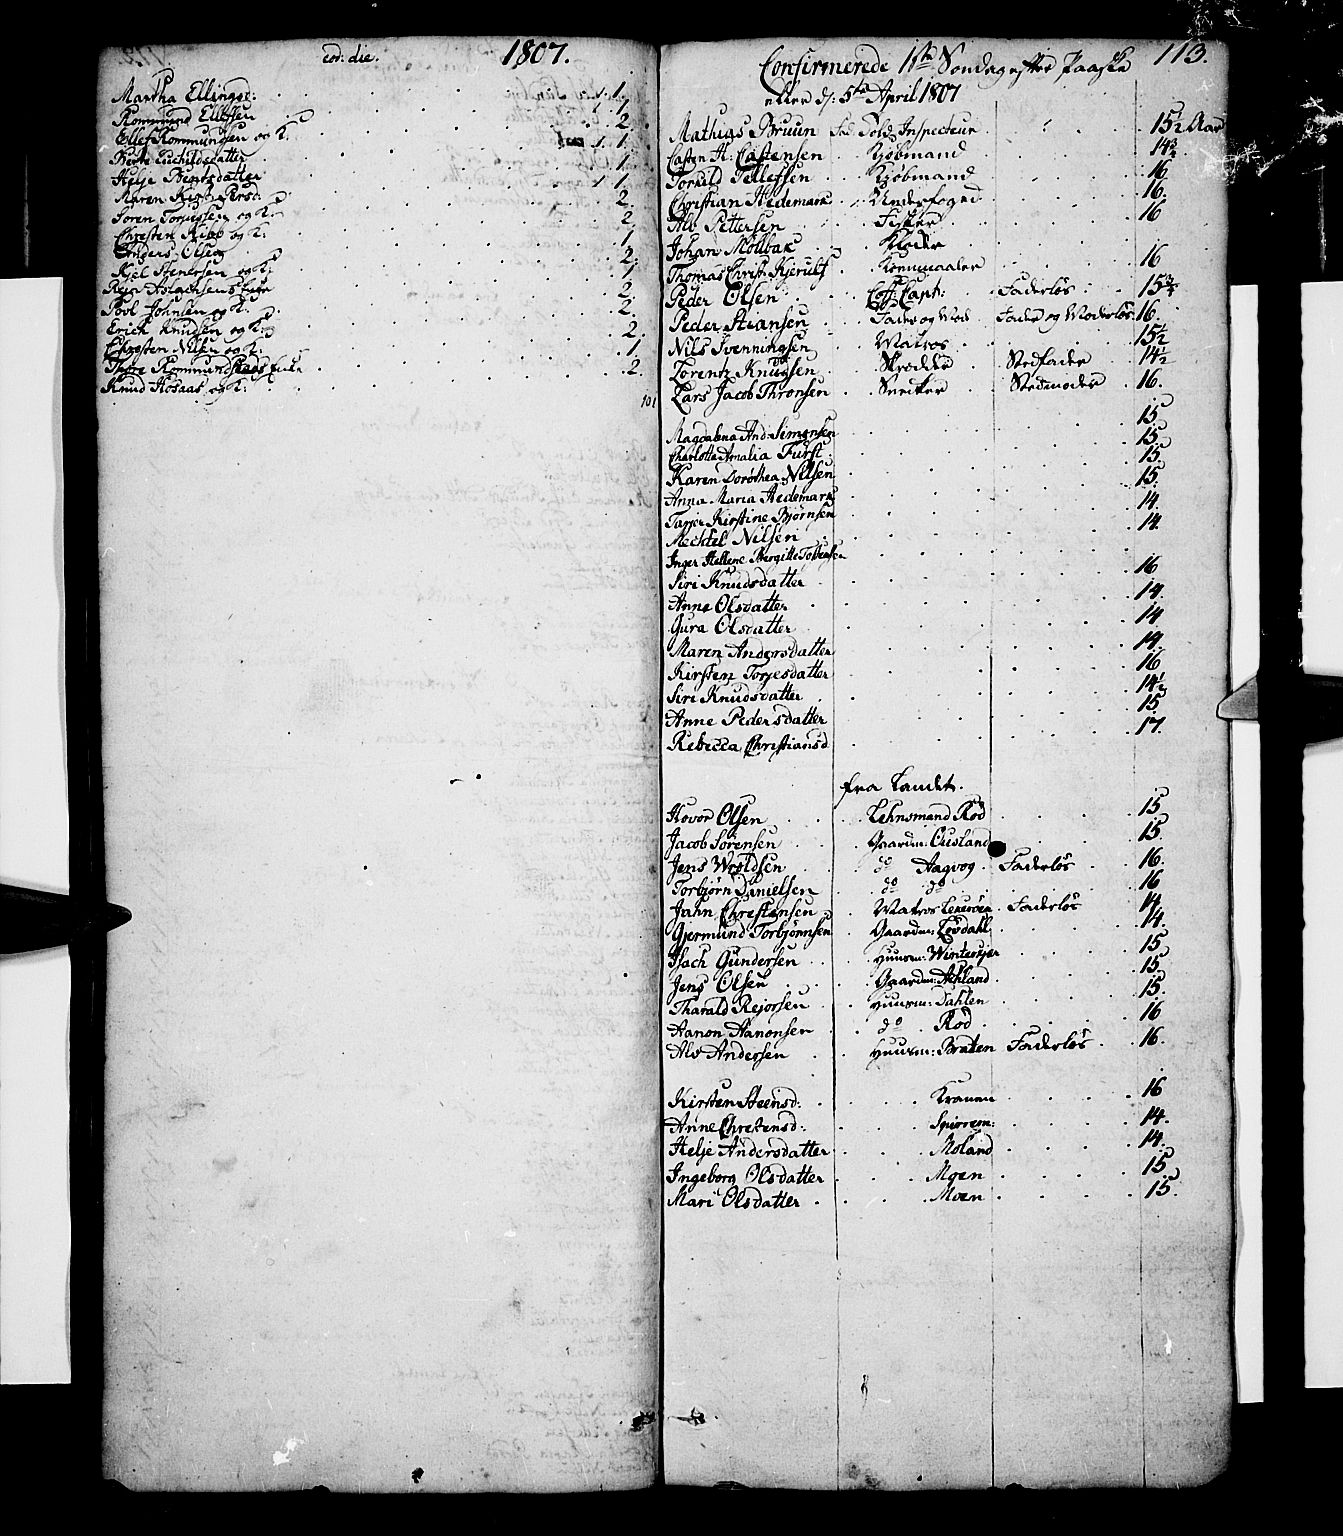 eod: die. 1807.
Martha Ellingsd: 1.
Rommund Ellefsen 1
Ellef Rommundsen og K. 2.
Berte Tarildsdatter 1.
Helje Berntsdatter 1
Maren Kirst. Persd. 1
Sören Torjussen og K. 2.
Christen Ribe og K. 2
Anders Olsen 1
Kjel Stenersen og K. 2.
Reer Aslachsens Enke 1
Povl Johnsen og K. 2
Erich Knudsen og K. 2.
Chresten Nilsen og K. 2
Thore Rommundstads Enke 1.
Knud Hosaas og K. 2
101
113.
Confirmerede 1ste Söndag efter Paaske
eller d: 5te April 1807
Mathias Bruun Told Inspecteur 15½ Aar
Casten H. Castensen Kjöbmand 14¾
Torkild Tellefsen Kjöbmand 16
Christian Hedemark Underfoged 16.
Alv Pettersen Fisker 16
Johan Möllbak
Thomas Christ. Kjerulf 16
Peder Olsen Faderlös 15¾
Peder Steansen Fader og Moderlös 16.
Nils Svenningsen Matros 15½
Lorentz Knudsen Skrædder Stedfader 14½
Lars Jacob Thronsen Sneeker Stedmoder 16.
Magdalena And: Simonsen 15
Charlotte Amalia Furst 15
Karen Dorothea Nilsen 15
Anna Maria Hedemark 15
Tarjer Kirstine Bjørnsen 14
Mecktel Nilsen 14.
Inger Hellene Bergitte Torbensen
Siri Knudsdatter 16
Anne Olsdatter 14
Gura Olsdatter 14
Maren Andersdatter 14
Kirsten Torjesdatter 16
Siri Knudsdatter 14½
Anne Pedersdatter 15
Rebecca Christiansd 17.
fra Landet.
Hovor Olsen Lehnsmand Röd 15
Jacob Sörensen Gaardm: Ousland 15
Jens Wroldsen do Aagvog Faderlös 16.
Torbjörn Danielsen do do 16
Jahn Christensen Matros Faderlös 14
Gjermund Torbjörnsen Gaardm: Lövdahl 14.
Isach Gundersen Huusm: Winterkjer 15
Jens Olsen Gaardm: Askland 15
Tharald Rejorsen Huusm: Dahlen 15
Aanon Aanonsen do Röd 16
Alv Andersen Huusm: Braten Faderlös 16.
Kirsten Steensd: 16
Anne Chrestensd: 14.
Helje Andersdatter Moland 14.
Ingeborg Olsdatter Moen 15
Mari Olsdatter Moen 15.